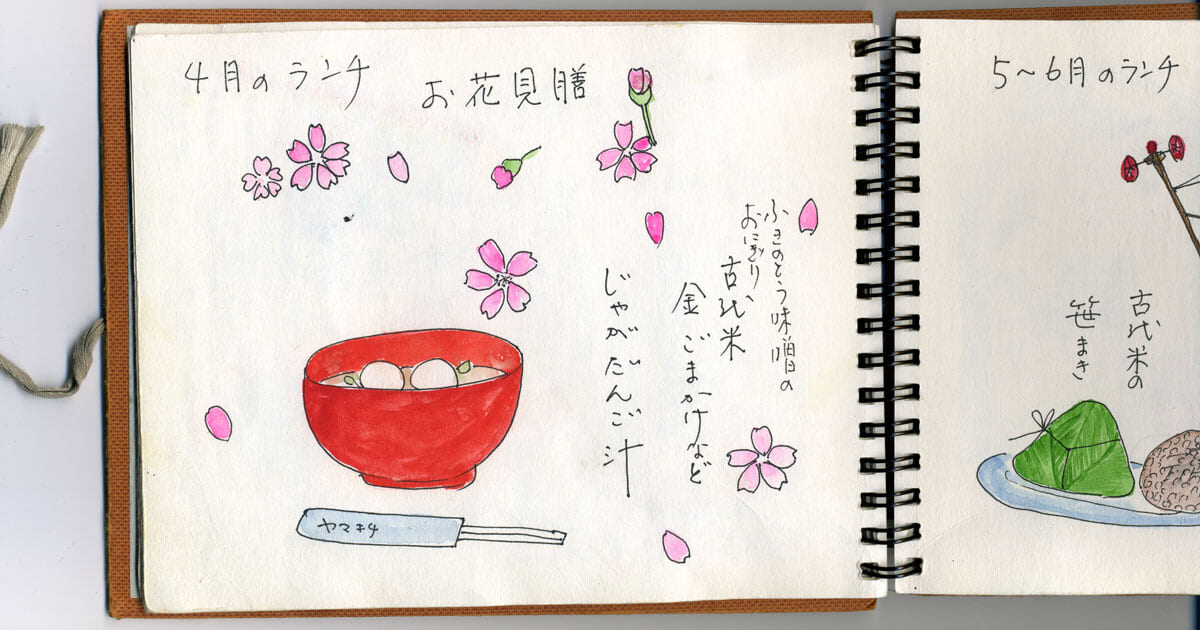 4月のランチ
お花見膳
ふきのとう味噌の
おにぎり
古代米
金ごまかけなど
じゃがだんご汁
ヤマキチ
5〜6月のランチ
古代米の
笹まき